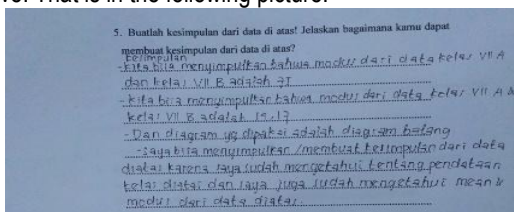 That is in the following picture.
5. Buatlah kesimpulan dari data di atas! Jelaskan bagaimana kamu dapat
membuat kesimpulan dari data di atas?
kesimpulan
-kita bisa menyimpulkan bahwa modus dari data kelas VII A
dan kelas VII B adalah
-kita bisa menyimpulkan bahwa modus dari data kelas VII A &
kelas VII B adalah 15.13
- Dan diagram yg dipakai adalah diagram batang
-saya bisa menyimpulkan /membuat kesimpulan dari data
diatas karena saya sudah mengetahui tentang pendataan
kelas diatas dan saya juga sudah mengetahui mean &
modus dari data diatas